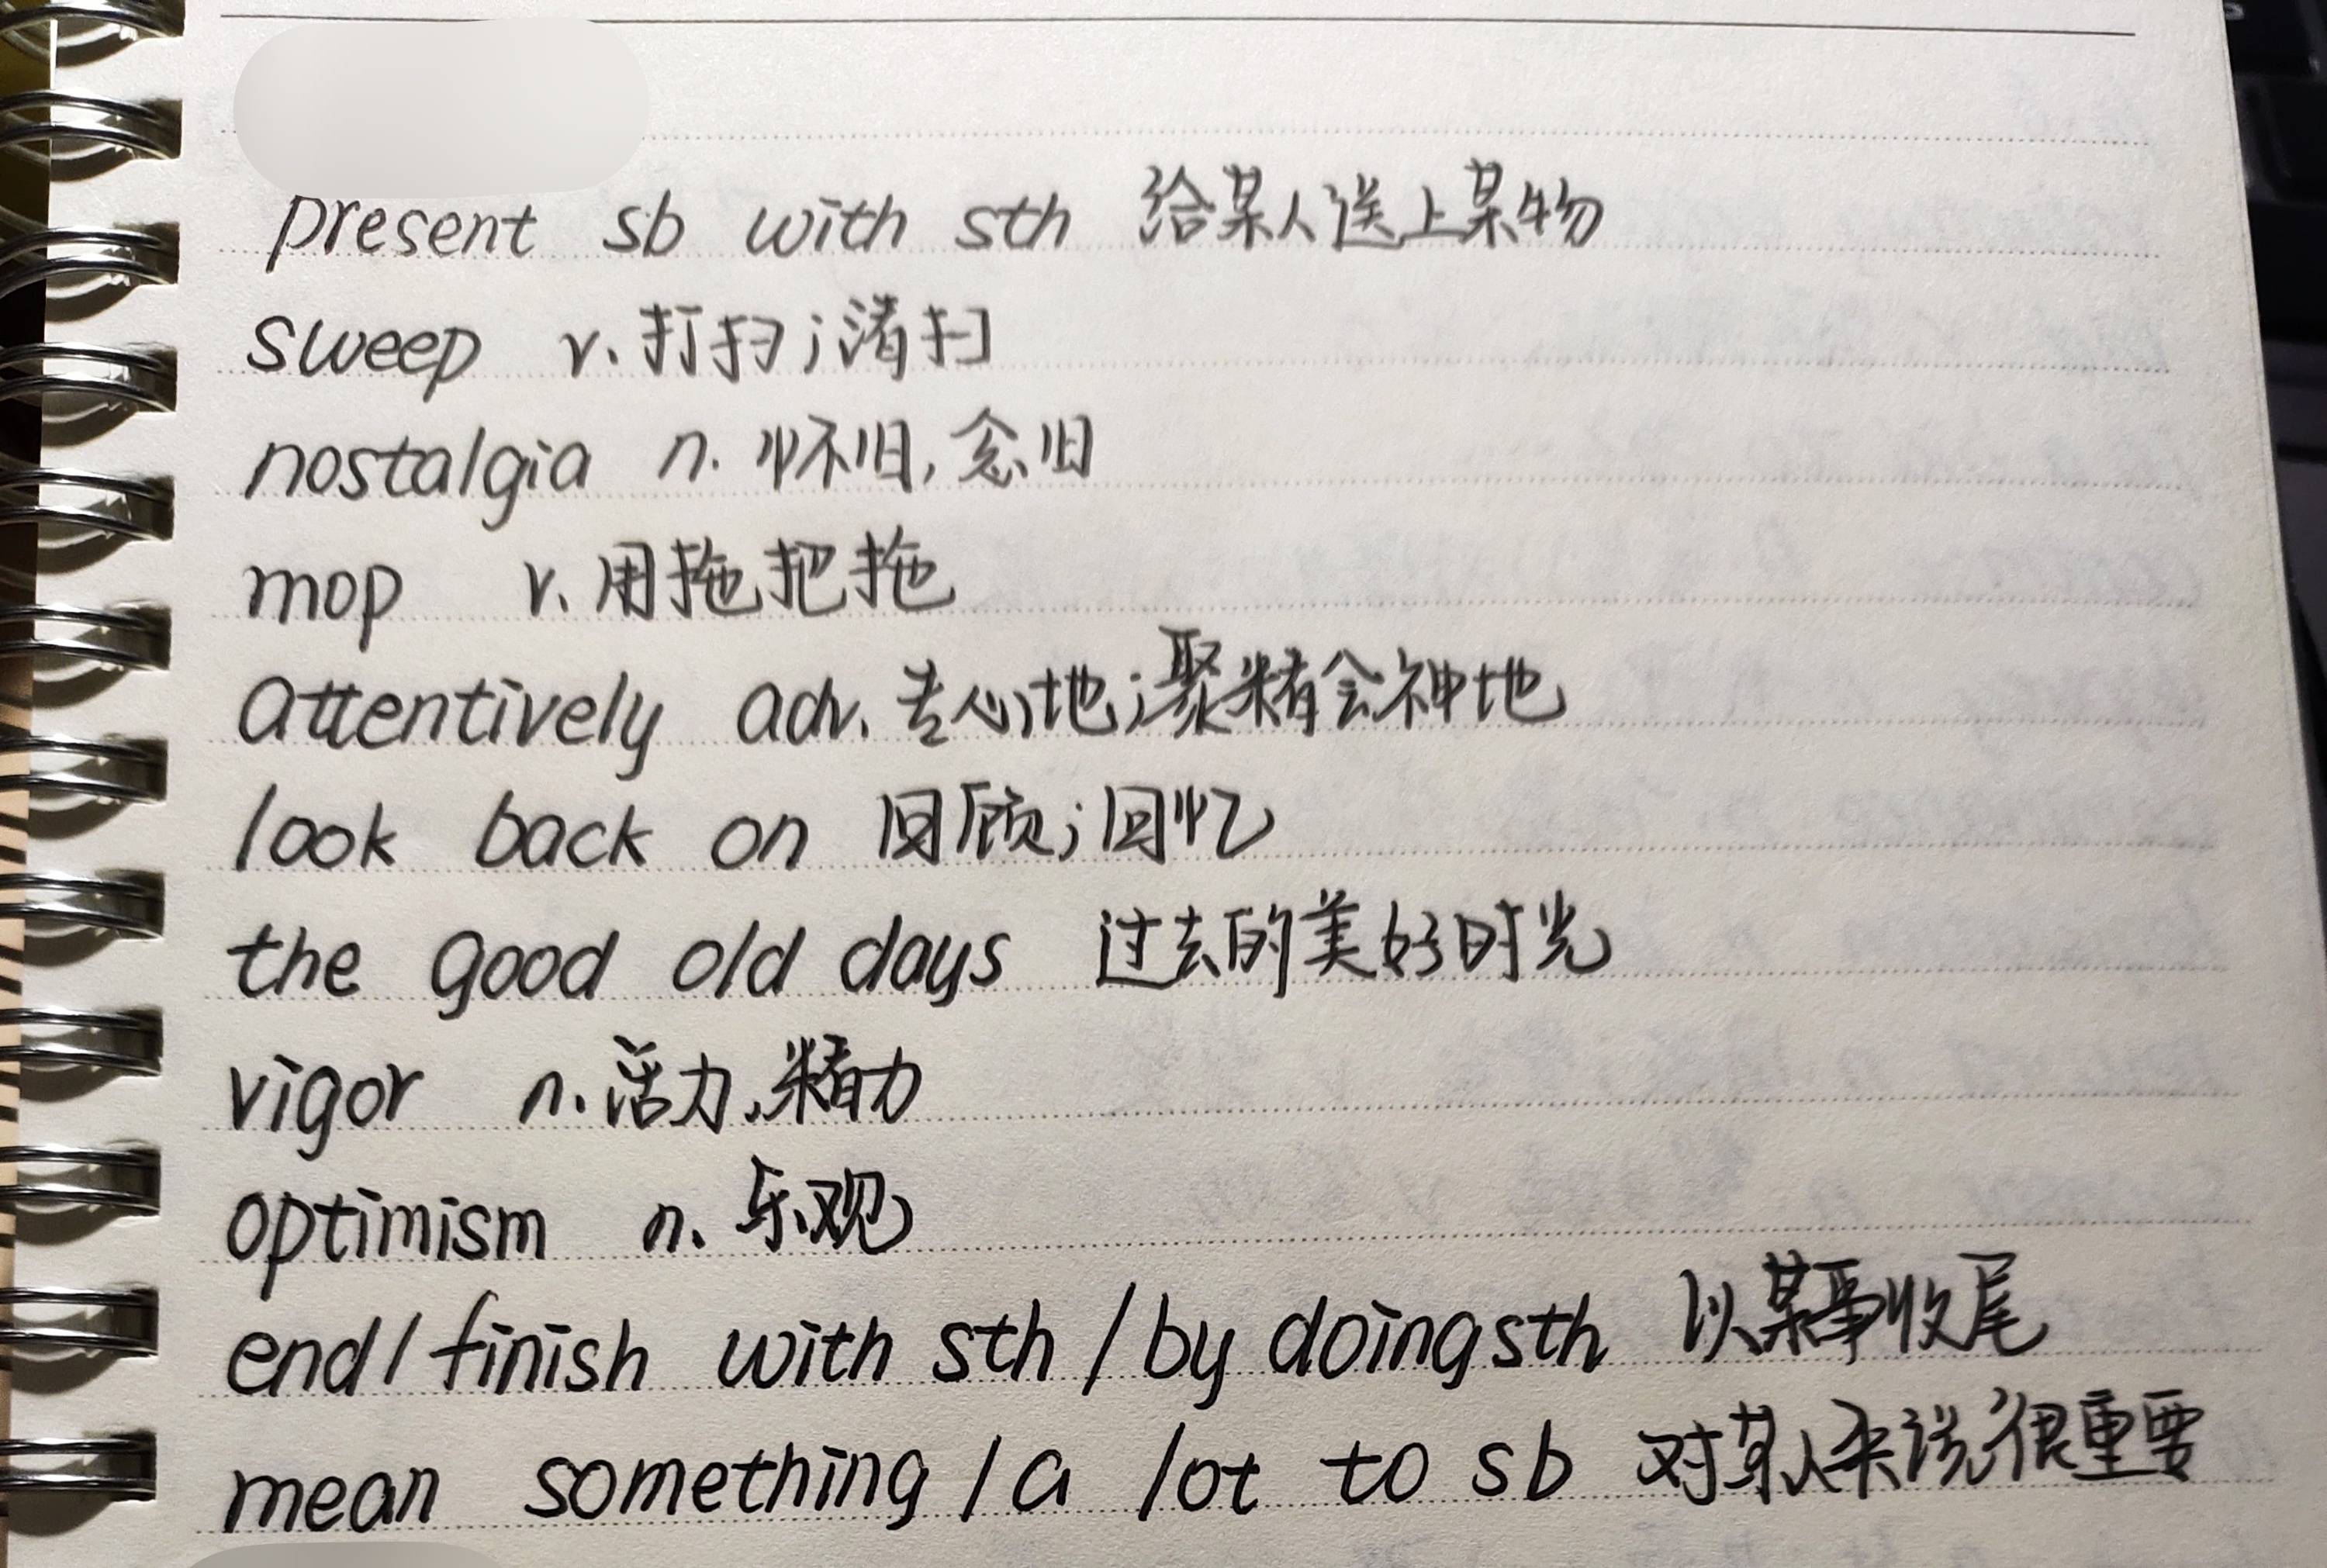 present sb with sth 给某人送上某物
sweep v. 打扫；清扫
nostalgia n. 怀旧，念旧
mop v. 用拖把拖
attentively adv. 专心地；聚精会神地
look back on 回顾；回忆
the good old days 过去的美好时光
vigor n. 活力，精力
optimism n. 乐观
end/finish with sth/by doing sth 以某事收尾
mean something/a lot to sb 对某人来说很重要